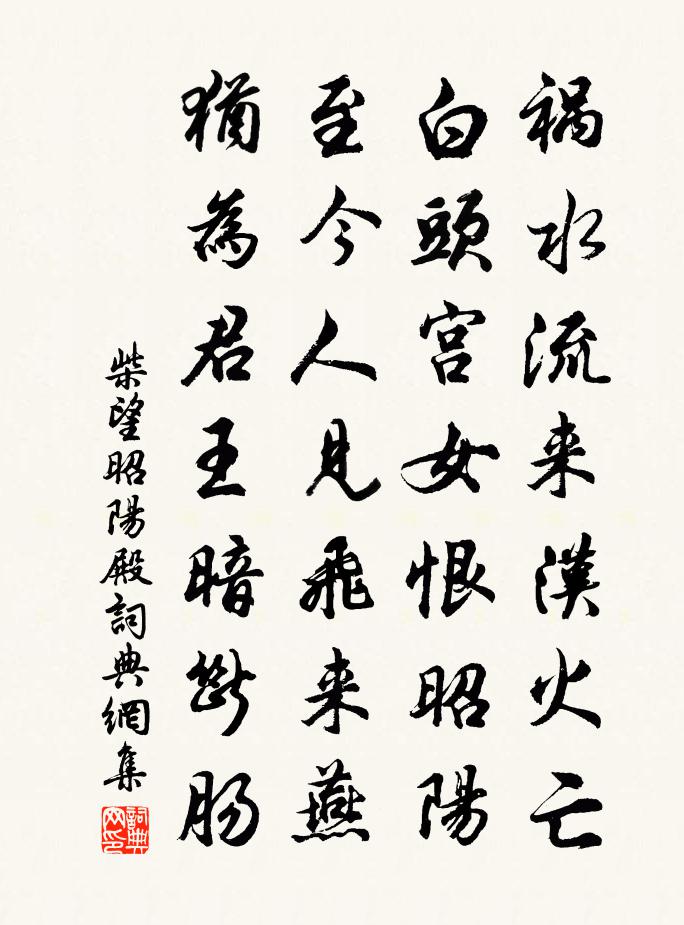 禍水流来漢火亡
白頭宮女恨昭陽
至今人見飛来燕
猶為君王暗斷腸
柴望昭陽殿詞典網集
詞典網印